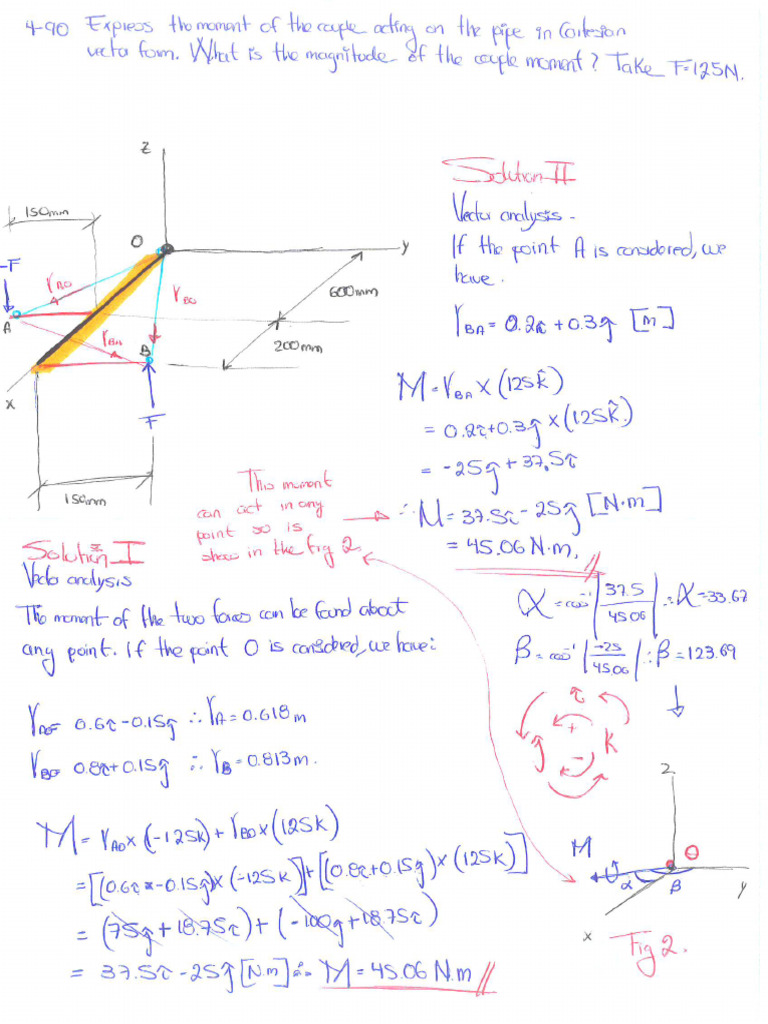 4-90 Express the moment of the couple acting on the pipe in Cartesian
vector form. What is the magnitude of the couple moment? Take F=125N.
z
150mm
O
y
-F
rAO
rBO
600mm
A
rBA
B
200mm
x
F
150mm
Solution II
Vector analysis -
If the point A is considered, we
have.
rBA = 0.2i + 0.3j [m]
M = rBA x (125k̂)
= 0.2i + 0.3j x (125k̂)
= -25j + 37.5i
∴ M = 37.5i - 25j [N·m]
= 45.06 N·m. //
This moment
can act in any
point so is
show in the fig 2.
α = cos⁻¹ |37.5/45.06| ∴ α = 33.67
β = cos⁻¹ |-25/45.06| ∴ β = 123.69
i
+
j
k
-
Solution I
Vector analysis
The moment of the two forces can be found about
any point. If the point O is considered, we have:
rAO = 0.6i - 0.15j ∴ rA = 0.618m
rBO = 0.8i + 0.15j ∴ rB = 0.813m.
M = rAO x (-125k) + rBO x (125k)
= [(0.6i - 0.15j) x (-125k)] + [(0.8i + 0.15j) x (125k)]
= (75j + 18.75i) + (-100j + 18.75i)
= 37.5i - 25j [N.m] ∴ M = 45.06 N.m //
z
M
θ
α
β
y
x
Fig 2.